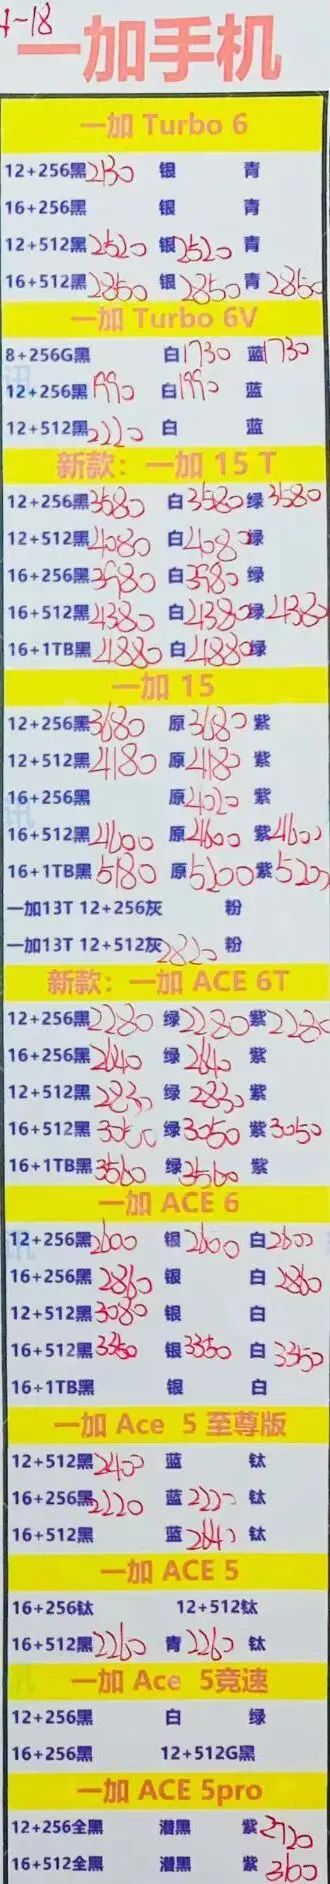 4-18
一加手机
一加 Turbo 6
12+256黑2130 银 青
16+256黑 银 青
12+512黑2520 银2520 青
16+512黑2850 银2850 青2850
一加 Turbo 6V
8+256G黑 白1730 蓝1730
12+256黑1990 白1990 蓝
12+512黑2220 白 蓝
新款：一加 15 T
12+256黑3580 白3580 绿3580
12+512黑4080 白4080 绿
16+256黑3980 白3980 绿
16+512黑4380 白4380 绿4380
16+1TB黑4880 白4880 绿
一加 15
12+256黑3680 原3680 紫
12+512黑4180 原4180 紫
16+256黑 原4020 紫
16+512黑4600 原4600 紫4600
16+1TB黑5180 原5200 紫5200
一加13T 12+256灰 粉
一加13T 12+512灰2820 粉
新款：一加 ACE 6T
12+256黑2280 绿2280 紫2280
16+256黑2640 绿2640 紫
12+512黑2830 绿2830 紫
16+512黑3050 绿3050 紫3050
16+1TB黑3560 绿3560 紫
一加 ACE 6
12+256黑2600 银2600 白2600
16+256黑2860 银 白2860
12+512黑3080 银 白
16+512黑3350 银3350 白3350
16+1TB黑 银 白
一加 Ace 5 至尊版
12+512黑2400 蓝 钛
16+256黑2220 蓝2220 钛
16+512黑 蓝2640 钛
一加 ACE 5
16+256钛 12+512钛
16+512黑2260 青2260 钛
一加 Ace 5竞速
12+256黑 白 绿
16+256黑 12+512G黑
一加 ACE 5pro
12+256全黑 潜黑 紫2720
16+512全黑 潜黑 紫3100